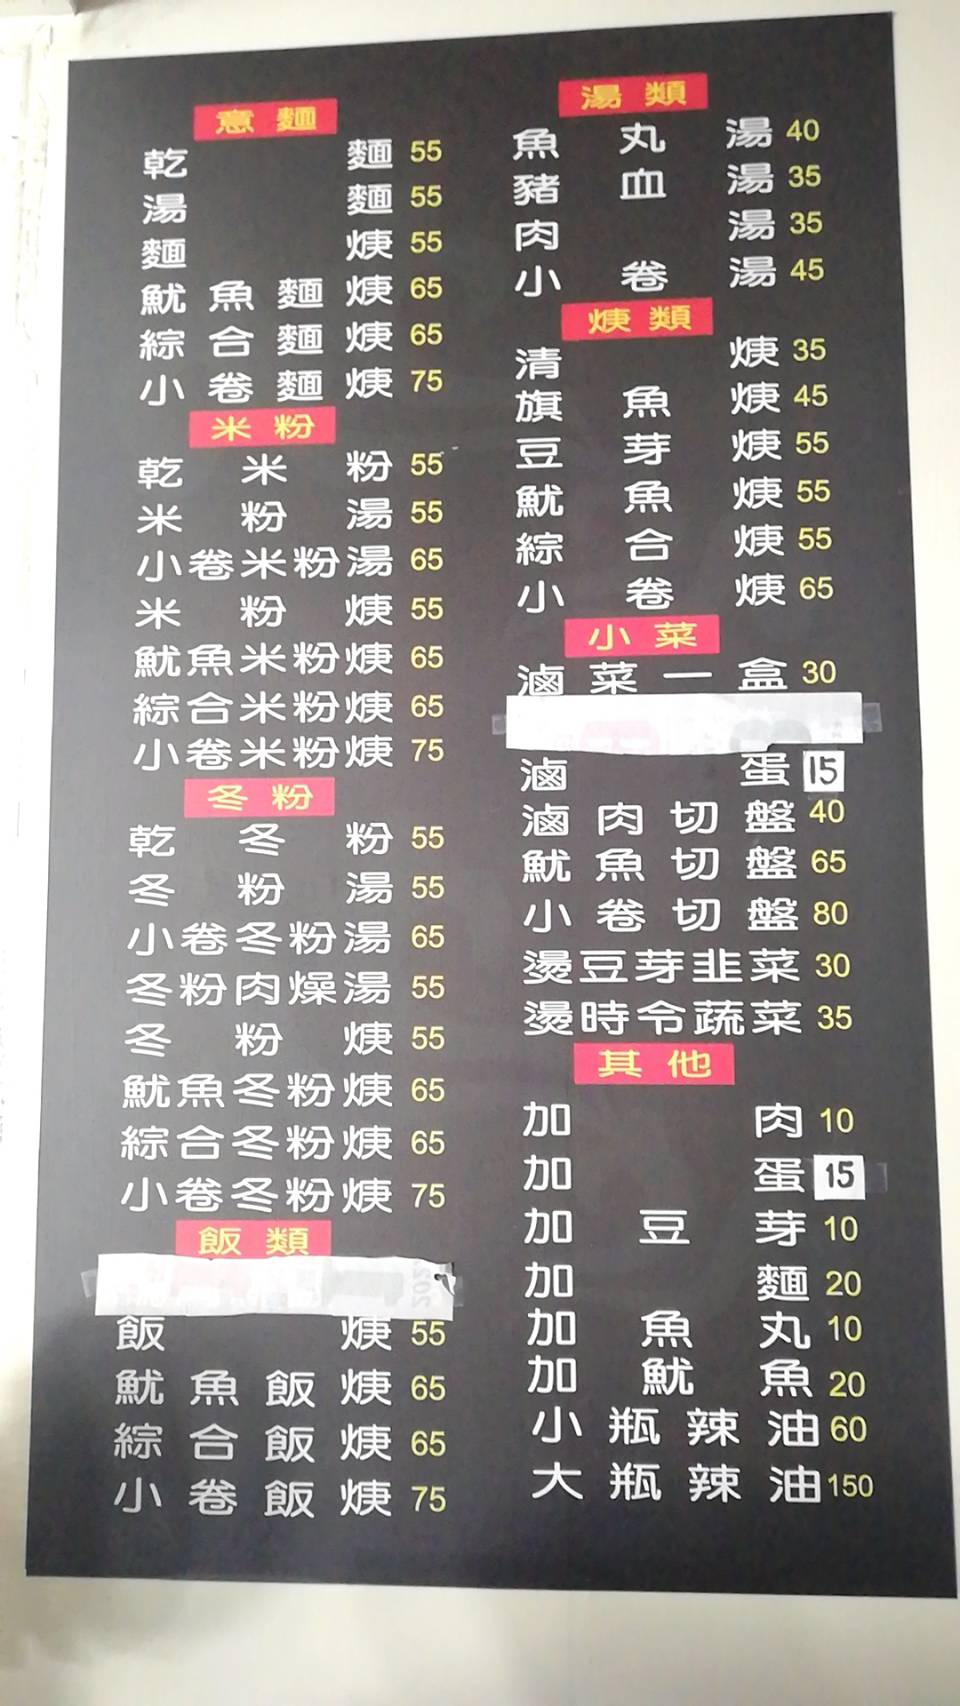 意麵
乾麵 55
湯麵 55
麵焿 55
魷魚麵焿 65
綜合麵焿 65
小卷麵焿 75
米粉
乾米粉 55
米粉湯 55
小卷米粉湯 65
米粉焿 55
魷魚米粉焿 65
綜合米粉焿 65
小卷米粉焿 75
冬粉
乾冬粉 55
冬粉湯 55
小卷冬粉湯 65
冬粉肉燥湯 55
冬粉焿 55
魷魚冬粉焿 65
綜合冬粉焿 65
小卷冬粉焿 75
飯類
飯焿 55
魷魚飯焿 65
綜合飯焿 65
小卷飯焿 75
湯類
魚丸湯 40
豬血湯 35
肉湯 35
小卷湯 45
焿類
清焿 35
旗魚焿 45
豆芽焿 55
魷魚焿 55
綜合焿 55
小卷焿 65
小菜
滷菜一盒 30
滷蛋 15
滷肉切盤 40
魷魚切盤 65
小卷切盤 80
燙豆芽韭菜 30
燙時令蔬菜 35
其他
加肉 10
加蛋 15
加豆芽 10
加麵 20
加魚丸 10
加魷魚 20
小瓶辣油 60
大瓶辣油 150